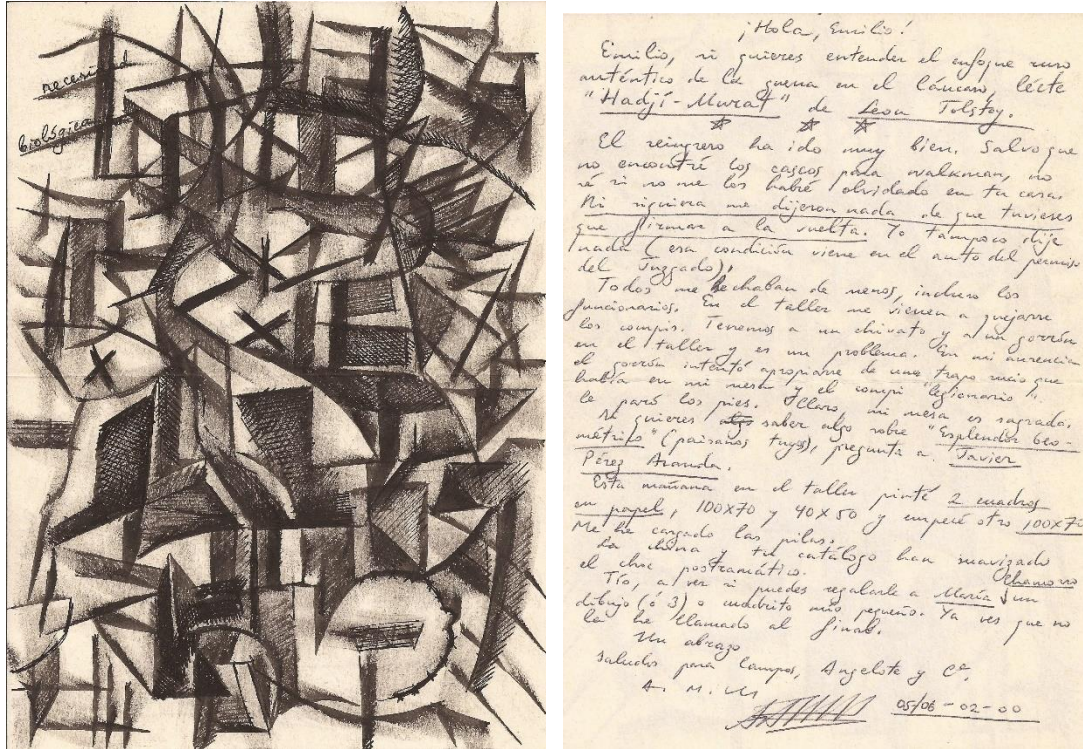 necesidad
biológica
¡Hola, Emilio!
Emilio, si quieres entender el enfoque ruso
auténtico de la guerra en el Cáucaso, léete
"Hadjí-Murat" de Leon Tolstoy.
El reingreso ha ido muy bien. Salvo que
no encontré los cascos para walkman, no
sé si no me los habré olvidado en tu casa.
Ni siquiera me dijeron nada de que tuvieses
que firmar a la vuelta. Yo tampoco dije
nada (esa condición viene en el auto del permiso
del Juzgado).
Todos me hechaban de menos, incluso los
funcionarios. En el taller me vienen a quejarse
los compis. Tenemos a un chivato y a un gorrón
en el taller y es un problema. En mi ausencia
el gorrón intentó apropiarse de unos trapos míos que
había en mi mesa y el compi "legionario"
le paró los pies. Claro, mi mesa es sagrada.
Si quieres saber algo sobre "Esplendor Geo-
métrico" (paisanos tuyos), pregunta a Javier
Pérez Aranda.
Esta mañana en el taller pinté 2 cuadros
en papel, 100x70 y 40x50 y empecé otro 100x70
Me he cargado las pilas.
La y tu catálogo han suavizado
el choc postramático.
Tío, a ver si puedes regalarle a María Chamorro un
dibujo (ó 3) o cuadrito mío pequeño. Ya ves que no
la he llamado al final.
Un abrazo
Saludos para Campos, Angelote y Cª.
A. M. M
05/06-02-00